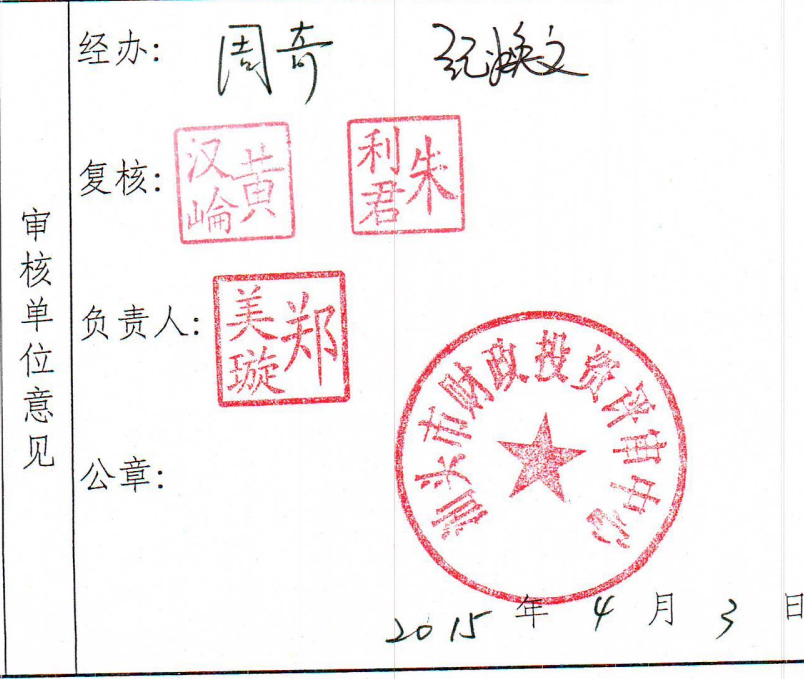 审核单位意见
经办: 周奇 纪焕文
复核: 黄汉崘 朱利君
负责人: 郑美璇
汕头市财政投资评审中心
公章:
2015年4月3日